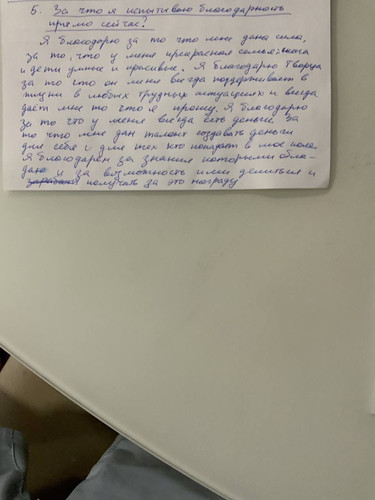 5. За что я испытываю благодарность
прямо сейчас?
Я благодарю за то что мне дана сила,
за то, что у меня прекрасная семья
и дети умные и красивые. Я благодарю Творца
за то что он меня всегда поддерживает в
жизни в любых трудных ситуациях и всегда
даёт мне то что я прошу. Я благодарю
за то что у меня всегда есть деньги. За
то что мне дан талант создавать деньги
для себя и для тех кто попадает в мое поле.
Я благодарен за знания которыми обла-
даю и за возможность ими делиться и
получать за это награду